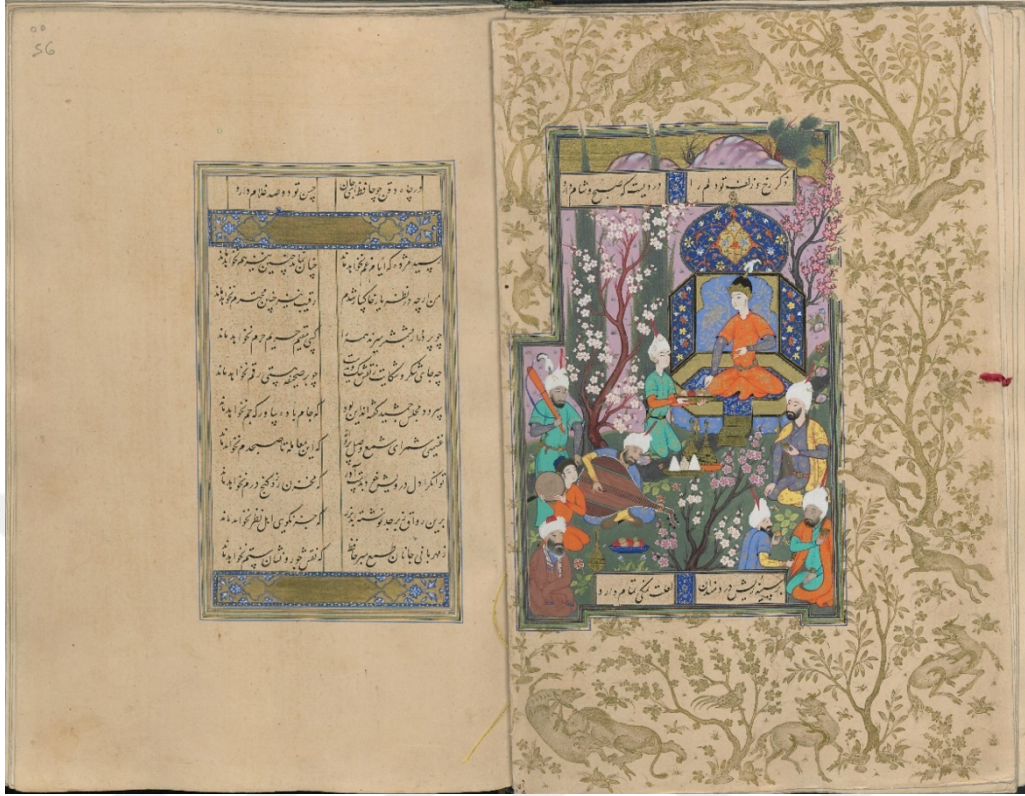 ذکر رخ و زلف تو دلم را وردیست که صبح و شام دارد
بر سینه ریش دردمندان لعلت نمکی تمام دارد
56
در چاه ذقن چو حافظ ای جان حسن تو دو صد غلام دارد
رسید مژده که ایام غم نخواهد ماند چنان نماند چنین نیز هم نخواهد ماند
من ارچه در نظر یار خاکسار شدم رقیب نیز چنین محترم نخواهد ماند
چو پرده دار بشمشیر میزند همه را کسی مقیم حریم حرم نخواهد ماند
چه جای شکر و شکایت ز نقش نیک و بدست چو بر صحیفه هستی رقم نخواهد ماند
سرود مجلس جمشید گفته اند این بود که جام باده بیاور که جم نخواهد ماند
غنیمتی شمر ای شمع وصل پروانه که این معامله تا صبحدم نخواهد ماند
توانگرا دل درویش خود بدست آور که مخزن زر و گنج درم نخواهد ماند
برین رواق زبرجد نوشته اند بزر که جز نکویی اهل نظر نخواهد ماند
ز مهربانی جانان طمع مبر حافظ که نقش جور و نشان ستم نخواهد ماند